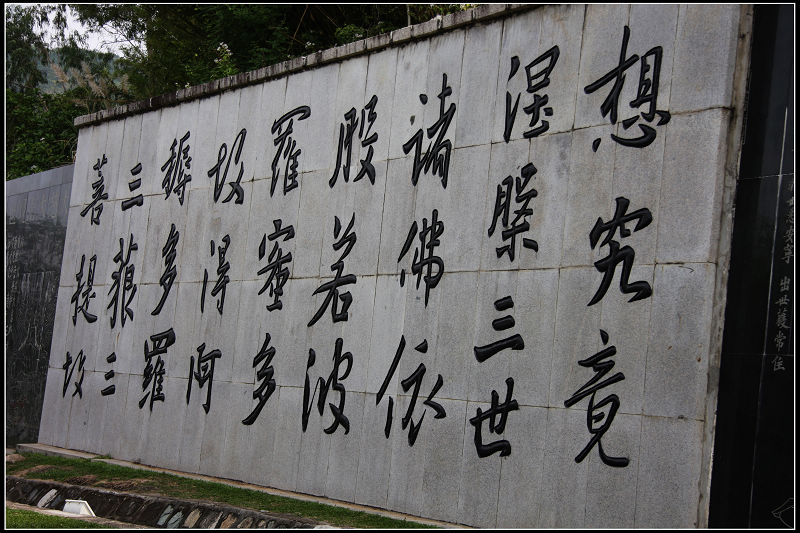 想究竟
涅槃三世
諸佛依
般若波
羅蜜多
故得阿
耨多羅
三藐三
菩提故
出世護常住